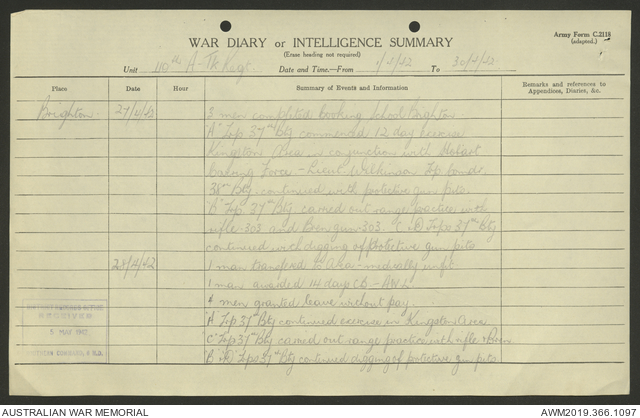 Army Form C.2118
(adapted.)
WAR DIARY or INTELLIGENCE SUMMARY
(Erase heading not required)
Unit 110th A-Tk Regt. Date and Time.—From 1/4/42 To 30/4/42
Place Date Hour Summary of Events and Information Remarks and references to
Appendices, Diaries, &c.
Brighton 27/4/42 3 men completed cooking school Brighton.
"A" Trp 37th Bty commenced 12 day exercise
Kingston Area in conjunction with Hobart
Force - Lieut Wilkinson Tp Comdr.
38th Bty continued with protective gun pits.
"B" Trp 37th Bty carried out range practice with
rifle .303 and Bren gun .303. "C" & "D" Trps 37th Bty
continued with digging of protective gun pits
28/4/42 1 man transferred to - medically unfit.
1 man awarded 14 days CB - AWL
4 men granted leave without pay.
"A" Trp 37th Bty continued exercise in Kingston Area.
"C" Trp 37th Bty carried out range practice with rifle & Bren
"B" & "D" Trps 37th Bty continued digging of protective gun pits.
RECEIVED
5 MAY 1942
AUSTRALIAN WAR MEMORIAL
AWM2019.366.1097